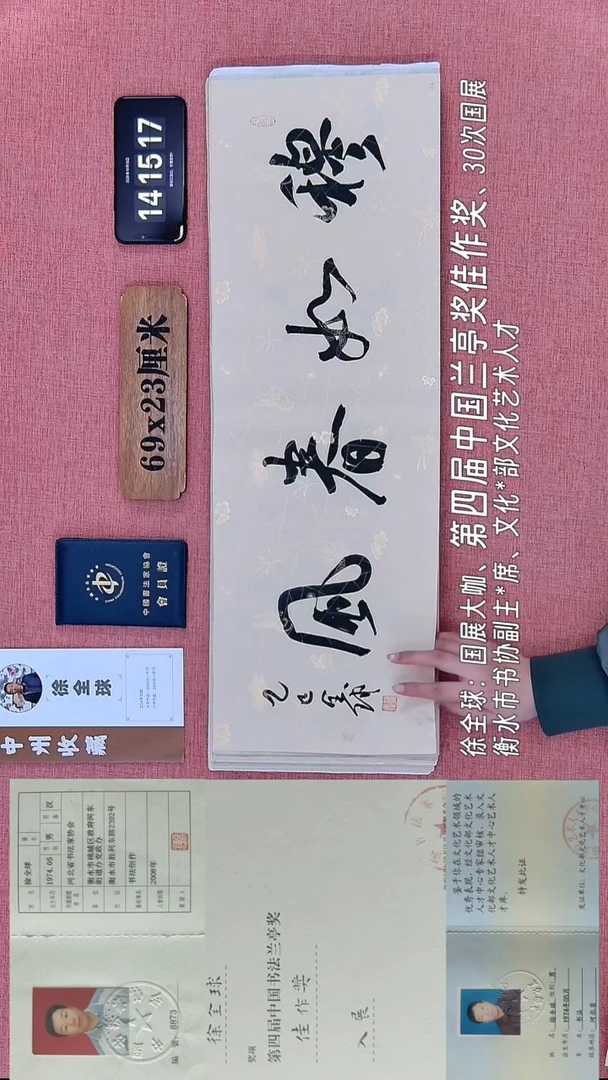 14 15 17
69x23厘米
中國書法家協會
會員證
徐全球
中州收藏
穆如春風
乙巳 全球
徐全球：国展大咖、第四届中国兰亭奖佳作奖、30次国展
衡水市书协副主*席、文化*部文化艺术人才
徐全球
男
汉
1974.05
河北省书法家协会
衡水市桃城区政府河东
街道办党政办
衡水市胜利东路2202号
书法创作
2008年
编号: 8873
徐全球
奖项
第四届中国书法兰亭奖
佳作奖
入展
鉴于你在文化艺术领域的
优秀表现，经文化部文化艺术
人才中心专家组审核，录入文
化部文化艺术人才中心艺术人
才库。
特发此证
发证单位：文化部文化艺术人才中心